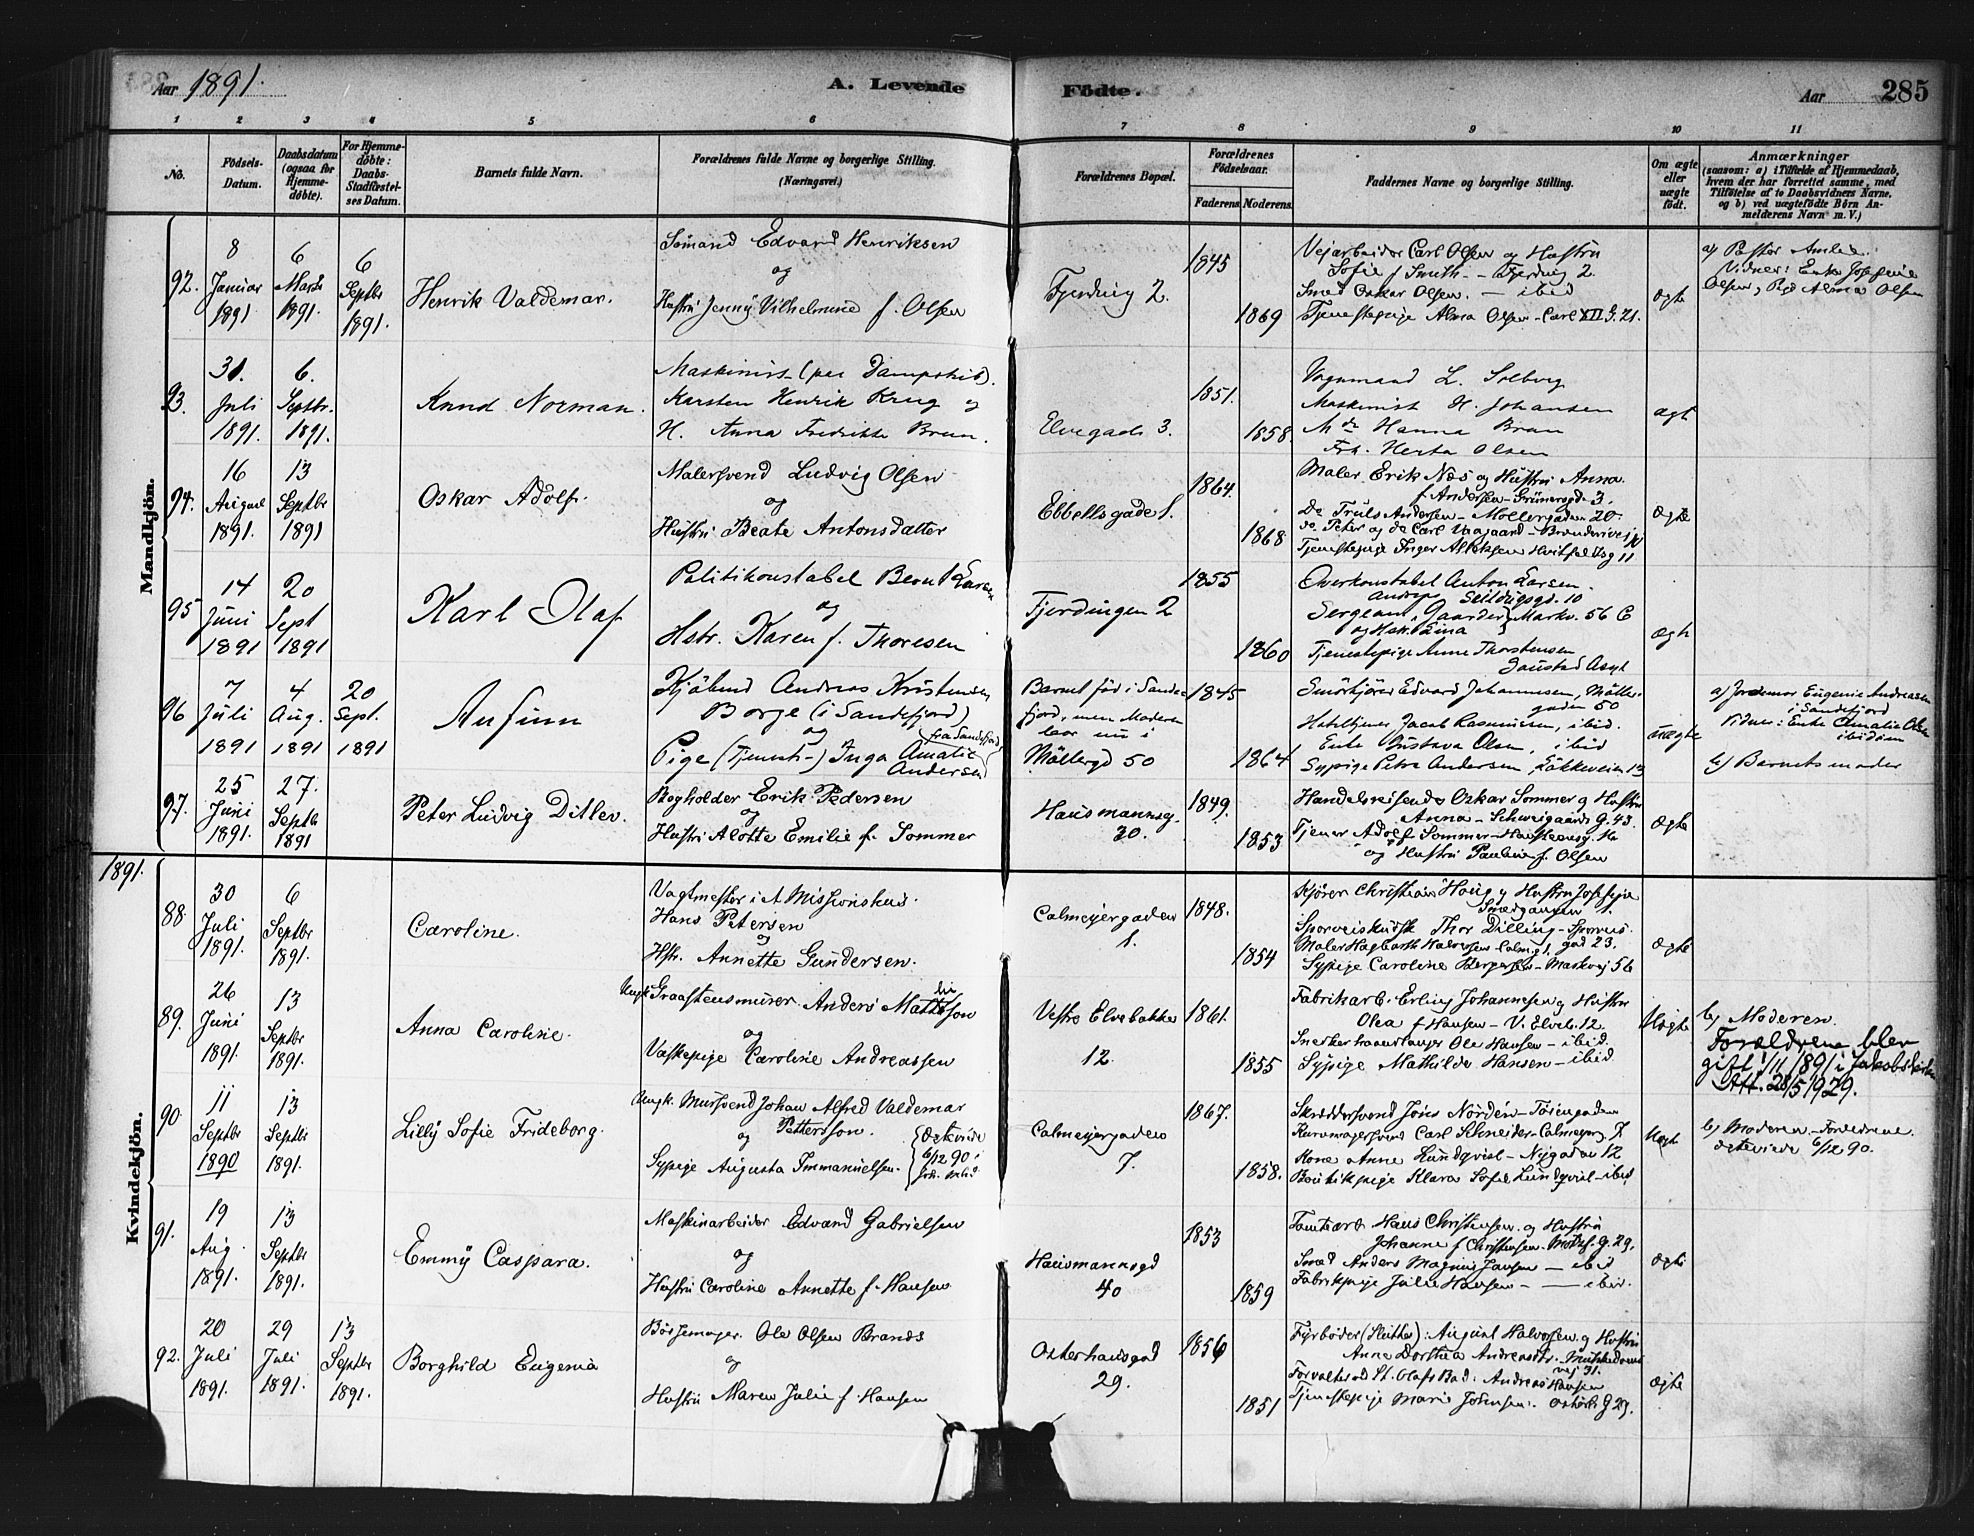 Aar 1891.
A. Levende
Födte.
Aar
285
1 2 3 4 5 6
7 8 9 10 11
No.
Födsels-Datum.
Daabsdatum (ogsaa for Hjemmedöbte).
For Hjemmedöbte: Daabs-Stadfæstelses Datum.
Barnets fulde Navn.
Forældrenes fulde Navne og borgerlige Stilling. (Næringsvei.)
Forældrenes Bopæl.
Forældrenes Födselsaar.
Faderens. Moderens.
Faddernes Navne og borgerlige Stilling.
Om ægte eller uægte födt.
Anmærkninger
(saasom: a) i Tilfælde af Hjemmedaab, hvem der har forrettet samme, med Tilföielse af to Daabsvidners Navne, og b) ved uægtefödte Börn Anmelderens Navn m. V.)
Mandkjön.
92.
8 Januar 1891
6 Marts 1891.
6 Septbr 1891.
Henrik Valdemar.
Sömand Edvard Henriksen
og
Hustru Jenny Vilhelmine f. Olsen
Fjerding 2.
1845
1869
Veiarbeider Carl Olsen og Hustru
Sofie f Smith - Fjerding 2
Smed Oskar Olsen. - ibid
Tjenestepige Alma Olsen - Carl XII G. 21.
ægte
a) Pastor
Vidner: Enke Josefine
Olsen, Pige Alma Olsen
93.
31. Juli 1891.
6. Septbr. 1891.
Knud Norman.
Maskinist (paa Dampskib).
Karsten Henrik Krug og
H. Anna Fredrikke Brun.
Elvegade 3.
1851.
1858.
Vognmand L. Solberg
Maskinist H. Johansen
Hanna Brun
Frk. Herta Olsen
ægt
94.
16 August 1891.
13 Septbr 1891
Oskar Adolf.
Malersvend Ludvig Olsen
og
Hustru Beate Antonsdatter
Ebbellsgade 1.
1864.
1868
Maler Erik Næs og Hustru Anna
f Andersen - Grünersgd. 3.
Do Truls Andersen - Möllergaden 20.
do. Peter og do Carl Vaagaard
Tjenestepige Inger
ægte
95
14 Juni 1891
20 Sept 1891
Karl Olaf
Politikonstabel Bernt Larsen
og
Hstr. Karen f. Thoresen
Fjerdingen 2
1855
1860
Overkonstabel Anton Larsen
Sergeant Gaarder Markv. 56 C
og Hstr. Lina
Tjenestepige Anne Thorstensen
Gaustad Asyl
ægte
96
7 Juli 1891
4 Aug. 1891
20 Sept. 1891
Anfinn
Kjöbmd Andreas Kristensen
Borge (i Sandefjord)
og
Pige (Tjeneste-) Inga Amalie
Andersen
fra Sandefjord
Barnet föd i Sande-
fjord, men Moderen
bor nu i
Möllergd 50
1845
1864
Edvard Johannesen, Möller-
gaden 50
Jacob Rasmussen, ibid.
Enke Gustava Olsen, ibid
Sypige Petra Andersen, Lökkeveien 13
uægte
a) Jordemor Eugenie Andreasen
i Sandefjord
Vidner: Enke Amalie Olsen
ibidem
b) Barnets moder
97.
25 Juni 1891.
27. Septbr 1891
Peter Ludvig Ditlev.
Bogholder Erik Pedersen
og
Hustru Alotte Emilie f. Sommer
Hausmannsg.
30.
1849.
1853
Handelsreisende Oskar Sommer og Hustru
Anna - Schweigaards G. 43.
Tjener Adolf Sommer
og Hustru Pauline f. Olsen
ægte
1891.
Kvindekjön.
88
30 Juli 1891.
6 Septbr 1891.
Caroline.
Vagtmester i Missionshus.
Hans Petersen
og
Hstr. Annette Gundersen.
Calmeyergaden
1.
1848.
1854
Kjörer Christian Haug og Hustru Josefine
Smedgangen 1.
Sporveiskudsk Thor Dilling - Sporveis-
gad 23.
Maler Hagbarth Halvorsen - Calm.g 1.
Sypige Caroline Bergersen - Markvej 56
ægte
89.
26 Juni 1891.
13 Septbr 1891.
Anna Caroline.
Ungk Graastensmurer Anders Mathisson
og
Vaskepige Caroline Andreassen
Vestre Elvebakke
12.
1861.
1855
Fabrikarb. Erling Johannesen og Hustru
Olea f Hansen - V. Elveb. 12
Snekkerhaandlanger Ole Hansen - ibid.
Sypige Mathilde Hansen - ibid
Uægte
b) Moderen.
Forældrene blev
gift 1/11 1891 i Jakobskirke
Att. 28/5 1929.
90
11 Septbr 1890
13 Septbr 1891.
Lilly Sofie Frideborg.
Ungk. Mursvend Johan Alfred Valdemar
og Pettersson.
Sypige Augusta Immanuelsen.
ægteviede
6/12 90 i
Calmeyergaden
7.
1867.
1858.
Skræddersvend Jöns Nordén - Töiengaden
Kurvmagersvend Carl Schneider - Calmeyerg. 7
Kone Anne Lundqvist - Nygaden 12
Boutikpige Klara Sofie Lundqvist - ibid
Uægte
b) Moderen. Forældrene
ægteviede 6/12 90.
91.
19 Aug. 1891.
13 Septbr 1891.
Emmy Caspara.
Maskinarbeider Edvard Gabrielsen
og
Hustru Caroline Annette f. Hansen
Hausmannsgd
40
1853
1859
Hans Christensen og Hustru
Johanne f Christensen
Smed Anders Magnus Jansen - ibid
Fabrikpige Julie Hansen - ibid.
ægte
92.
20 Juli 1891.
29 Juli 1891.
13 Septbr 1891.
Borghild Eugenia
Börsemager Ole Olsen Brands
og
Hustru Maren Julie f Hansen
Osterhausgad
29.
1856
1851
Fyrböder (Slutter): August Halvorsen og Hustru
Anne Dorthea Andreasdtr.
vej 31.
Forvalter ved St. Olafs Bad: Andreas Hansen
Tjenestepige Marie Johnsen. Osterh. G 29.
ægte